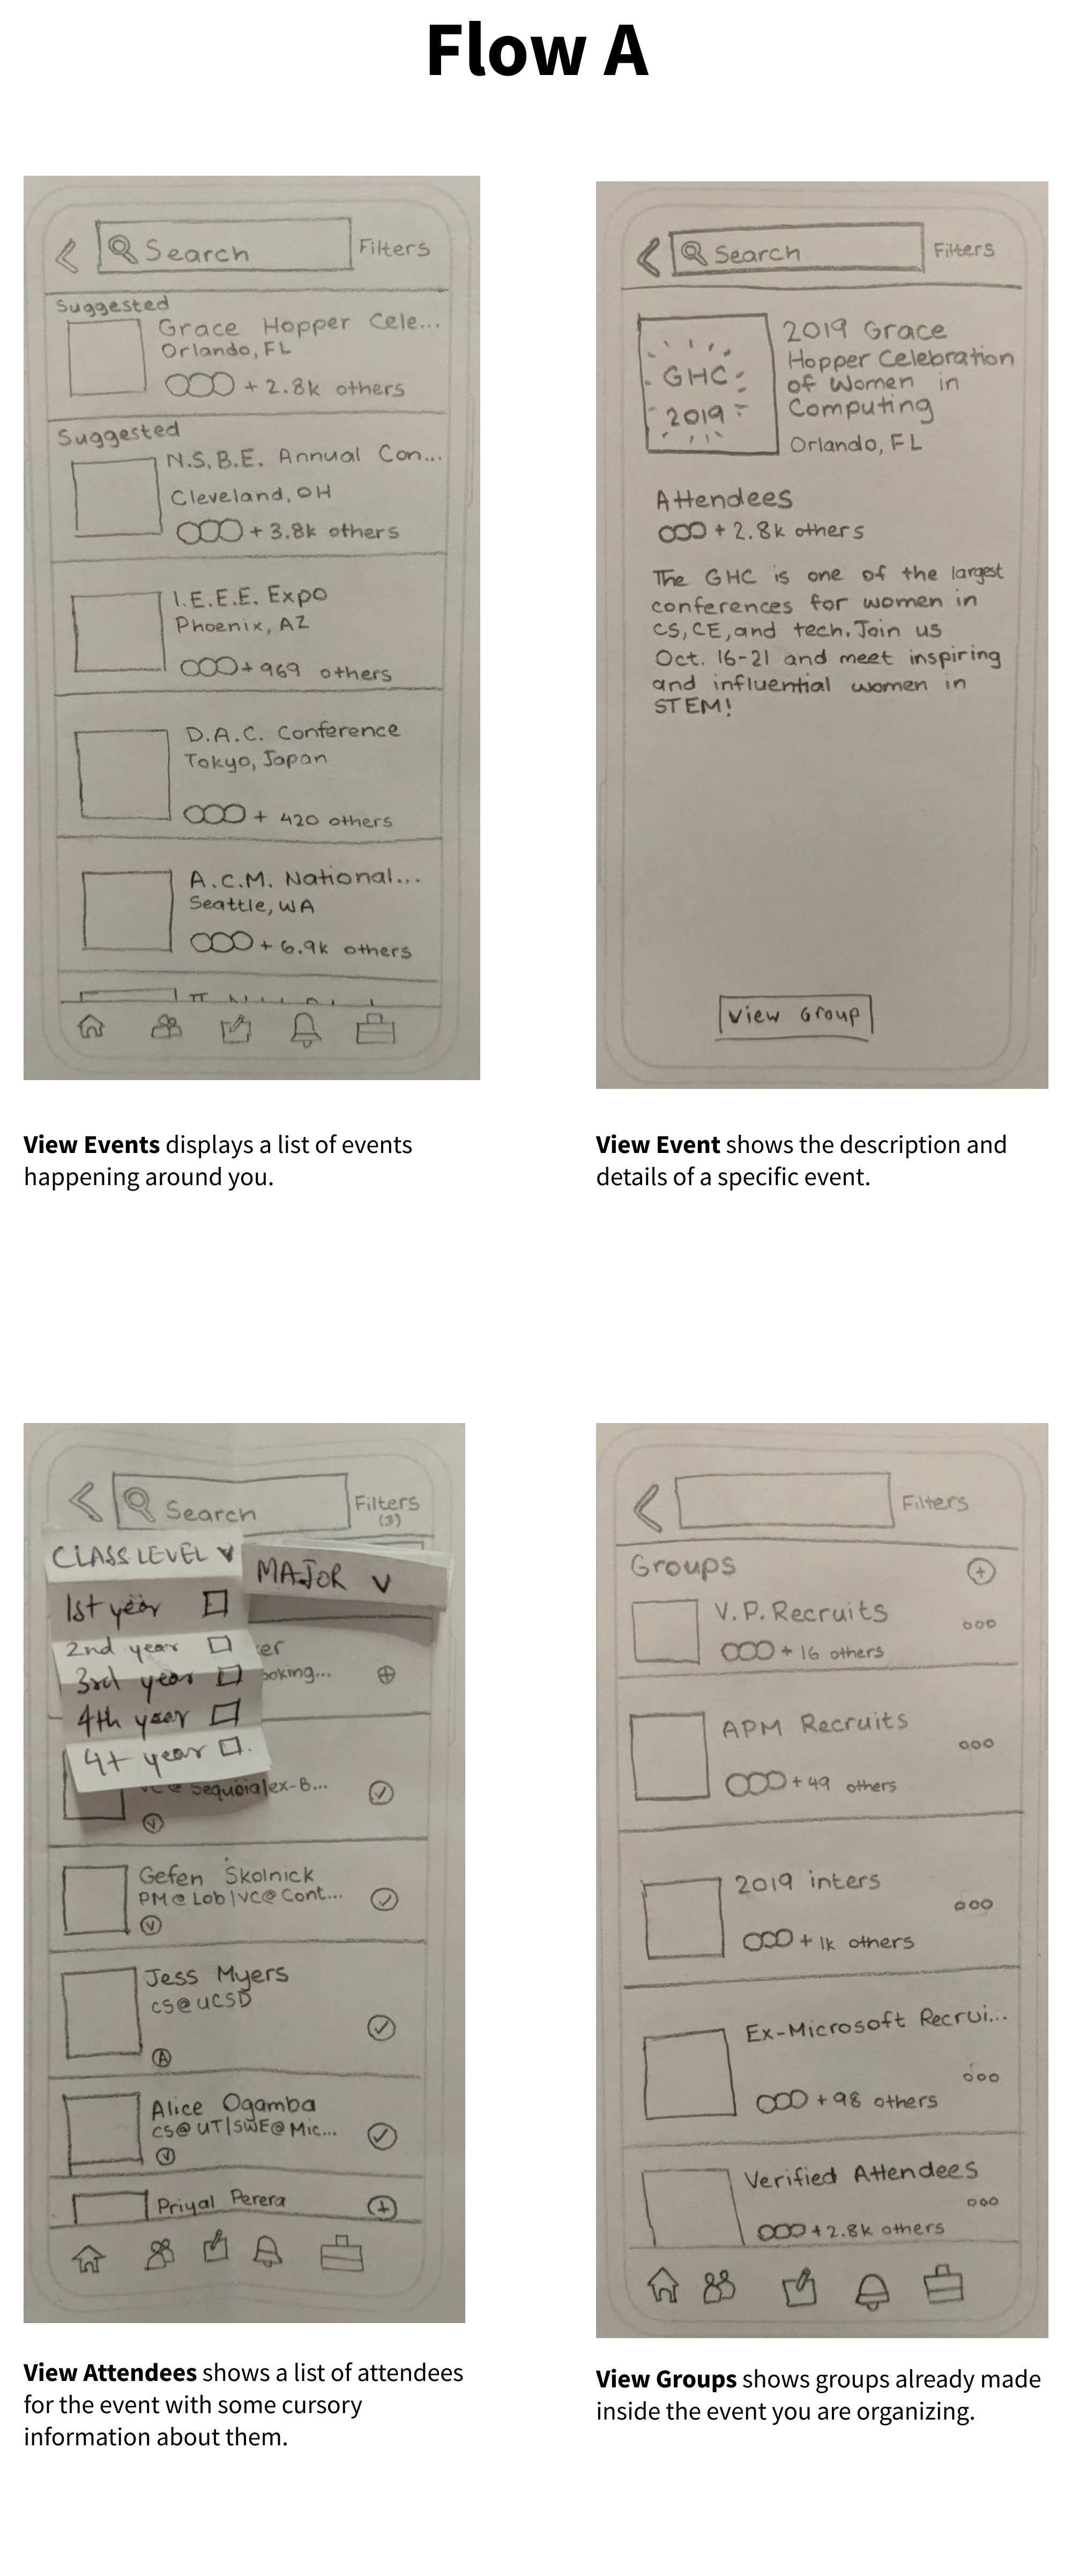 Flow A
Search
Filters
Suggested
Grace Hopper Cele...
Orlando, FL
+ 2.8k others
Suggested
N.S.B.E. Annual Con...
Cleveland, OH
+ 3.8k others
I.E.E.E. Expo
Phoenix, AZ
+ 969 others
D.A.C. Conference
Tokyo, Japan
+ 420 others
A.C.M. National...
Seattle, WA
+ 6.9k others
View Events displays a list of events
happening around you.
Search
Filters
GHC
2019
2019 Grace
Hopper Celebration
of Women in
Computing
Orlando, FL
Attendees
+ 2.8k others
The GHC is one of the largest
conferences for women in
CS, CE, and tech. Join us
Oct. 16-21 and meet inspiring
and influential women in
STEM!
View Group
View Event shows the description and
details of a specific event.
Search
Filters
(3)
CLASS LEVEL
MAJOR
1st year
2nd year
3rd year
4th year
4+ year
er
ooking...
Sequoia|ex-B...
V
Gefen Skolnick
PM@Lob|VC@Cont...
V
Jess Myers
CS@UCSD
A
Alice Ogamba
CS@UT|SWE@Mic...
V
Priyal Perera
View Attendees shows a list of attendees
for the event with some cursory
information about them.
Filters
Groups
V.P. Recruits
+ 16 others
APM Recruits
+ 49 others
2019 inters
+ 1k others
Ex-Microsoft Recrui...
+ 98 others
Verified Attendees
+ 2.8k others
View Groups shows groups already made
inside the event you are organizing.